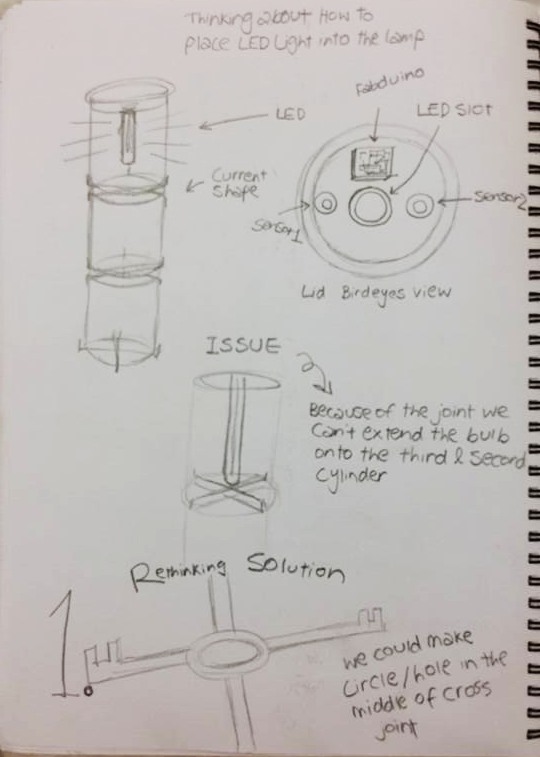 Thinking about How to
place LED Light into the lamp
LED
Current
Shape
Fabduino
LED Slot
Sensor1
Sensor2
Lid Birdeyes view
ISSUE
Because of the joint we
Can't extend the bulb
onto the third & second
Cylinder
Rethinking Solution
1
we could make
Circle/hole in the
middle of cross
joint